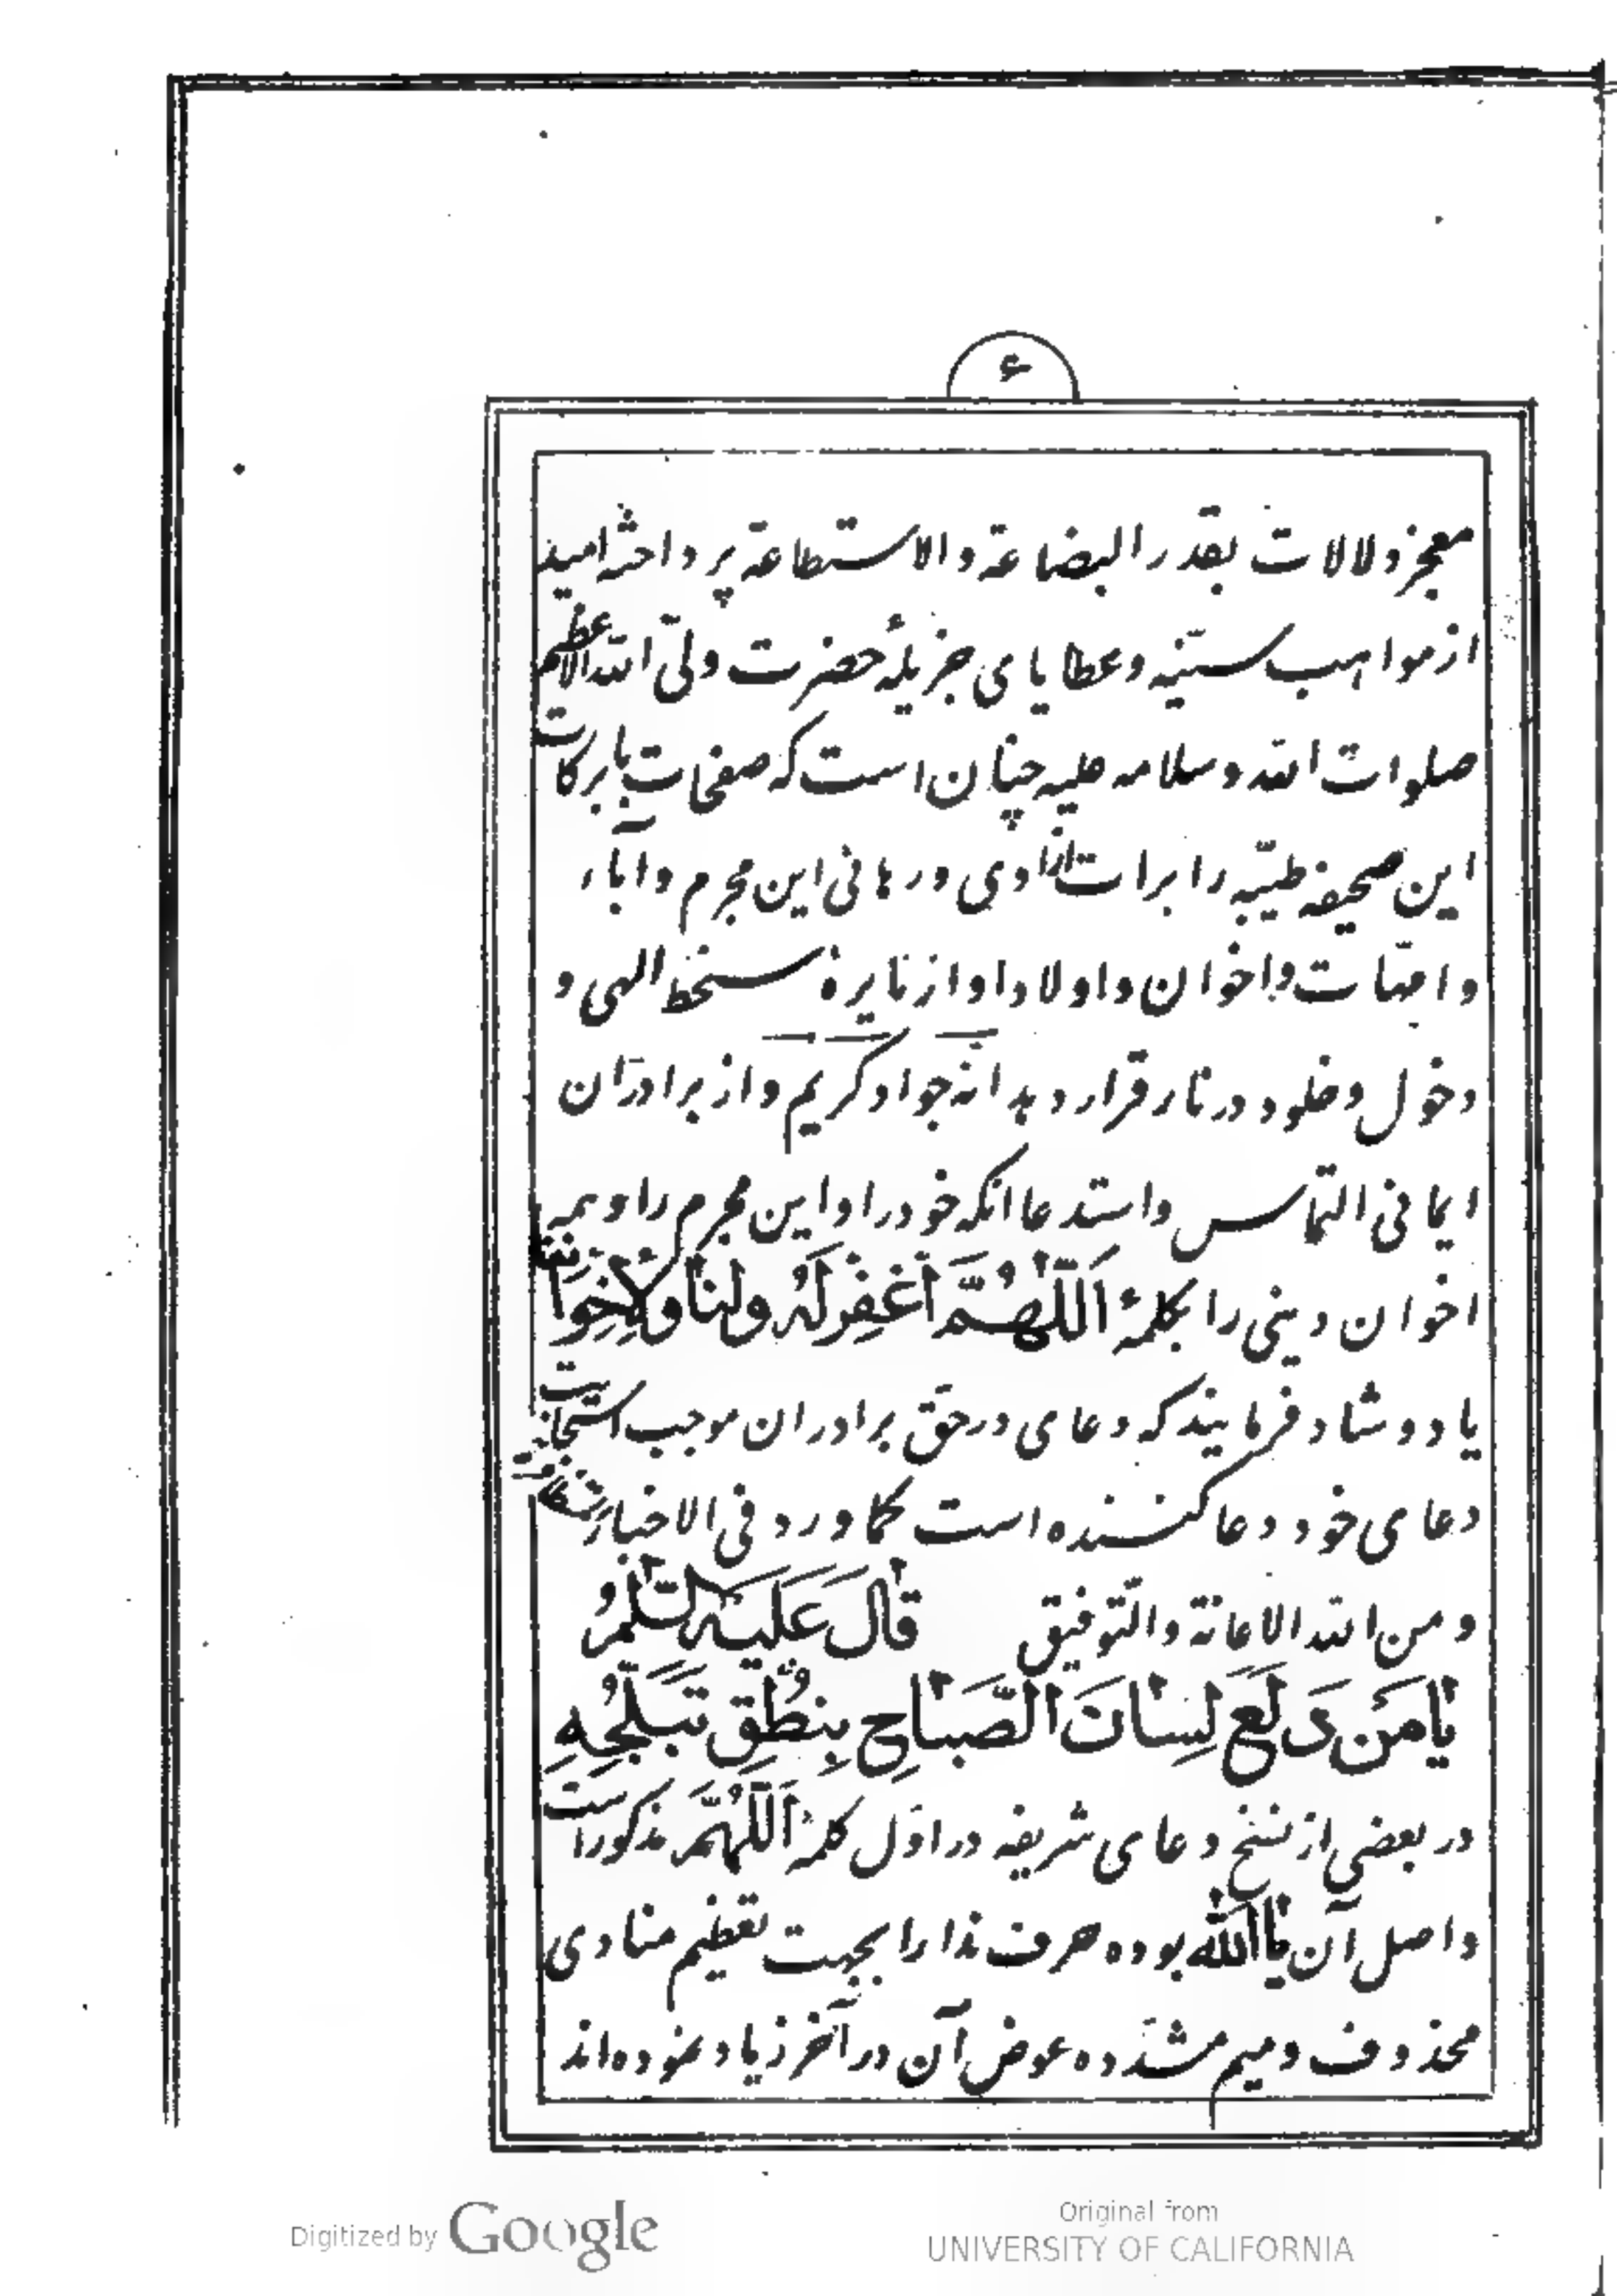 ۶
معجز دلالات بقدر البضاعة والاستطاعة پرداخت امید
از مواهب سنیّه و عطایای جزیلۀ حضرت ولیّ الله الاعظم
صلوات الله وسلامه علیه چنان است که صفحات بابرکات
این صحیفۀ طیّبه را برات ازادی و رهانی این مجرم و آباء
و امّهات واخوان و اولاد او از نایرۀ سخط الهی و
دخول و خلود در نار قرار دهد انّه جواد کریم و از برادران
ایمانی التماس و استدعا انکه خود را و این مجرم را و همه
اخوان دینی را بکلمۀ اَللّٰهُمَّ اَغْفِرْلَهُ وَلَنٰا وَلِاِخْوٰانِنٰا
یاد و شاد فرمایند که دعای در حق برادران موجب استجابت
دعای خود دعا کننده است کما ورد فی الاخبار
و من الله الاعانة والتّوفیق قٰالَ عَلَیْهِ السَّلٰامُ
یٰا مَنْ دَلَعَ لِسٰانَ الصَّبٰاحِ بِنُطْقِ تَبَلُّجِهِ
در بعضی از نسخ دعای شریفه در اوّل کلمۀ اَللّٰهُمَّ مذکور است
و اصل آن یٰا اللّٰه بوده حرف ندا را بجهت تعظیم منادی
محذوف و میم مشدّده عوض آن در آخر زیاد نموده‌اند
Digitized by Google
Original from
UNIVERSITY OF CALIFORNIA